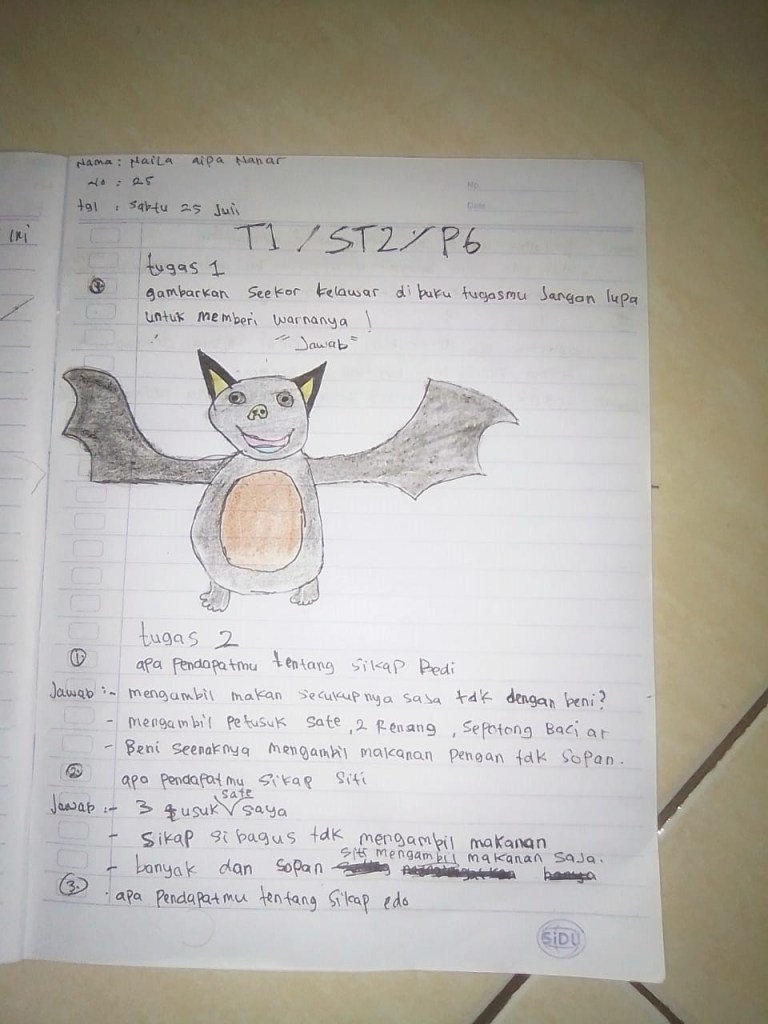 Nama : Naila aipa Nahar
No : 25
No
tgl : Sabtu 25 Juli
Date
ini
T1 / ST2 / P6
tugas 1
gambarkan Seekor kelawar di buku tugasmu Jangan lupa
untuk memberi warnanya !
"Jawab"
tugas 2
① apa Pendapatmu tentang Sikap Bedi
Jawab :- mengambil makan secukupnya saja tdk dengan beni?
- mengambil Petusuk sate, 2 Renang, Sepotong
- Beni Seenaknya mengambil makanan Pengan tdk Sopan.
2. apa pendapatmu Sikap Siti
Jawab :- 3 tusuk sate saya
- Sikap si bagus tdk mengambil makanan
- banyak dan Sopan siti mengambil makanan saja.
3. apa Pendapatmu tentang Sikap edo
SiDU